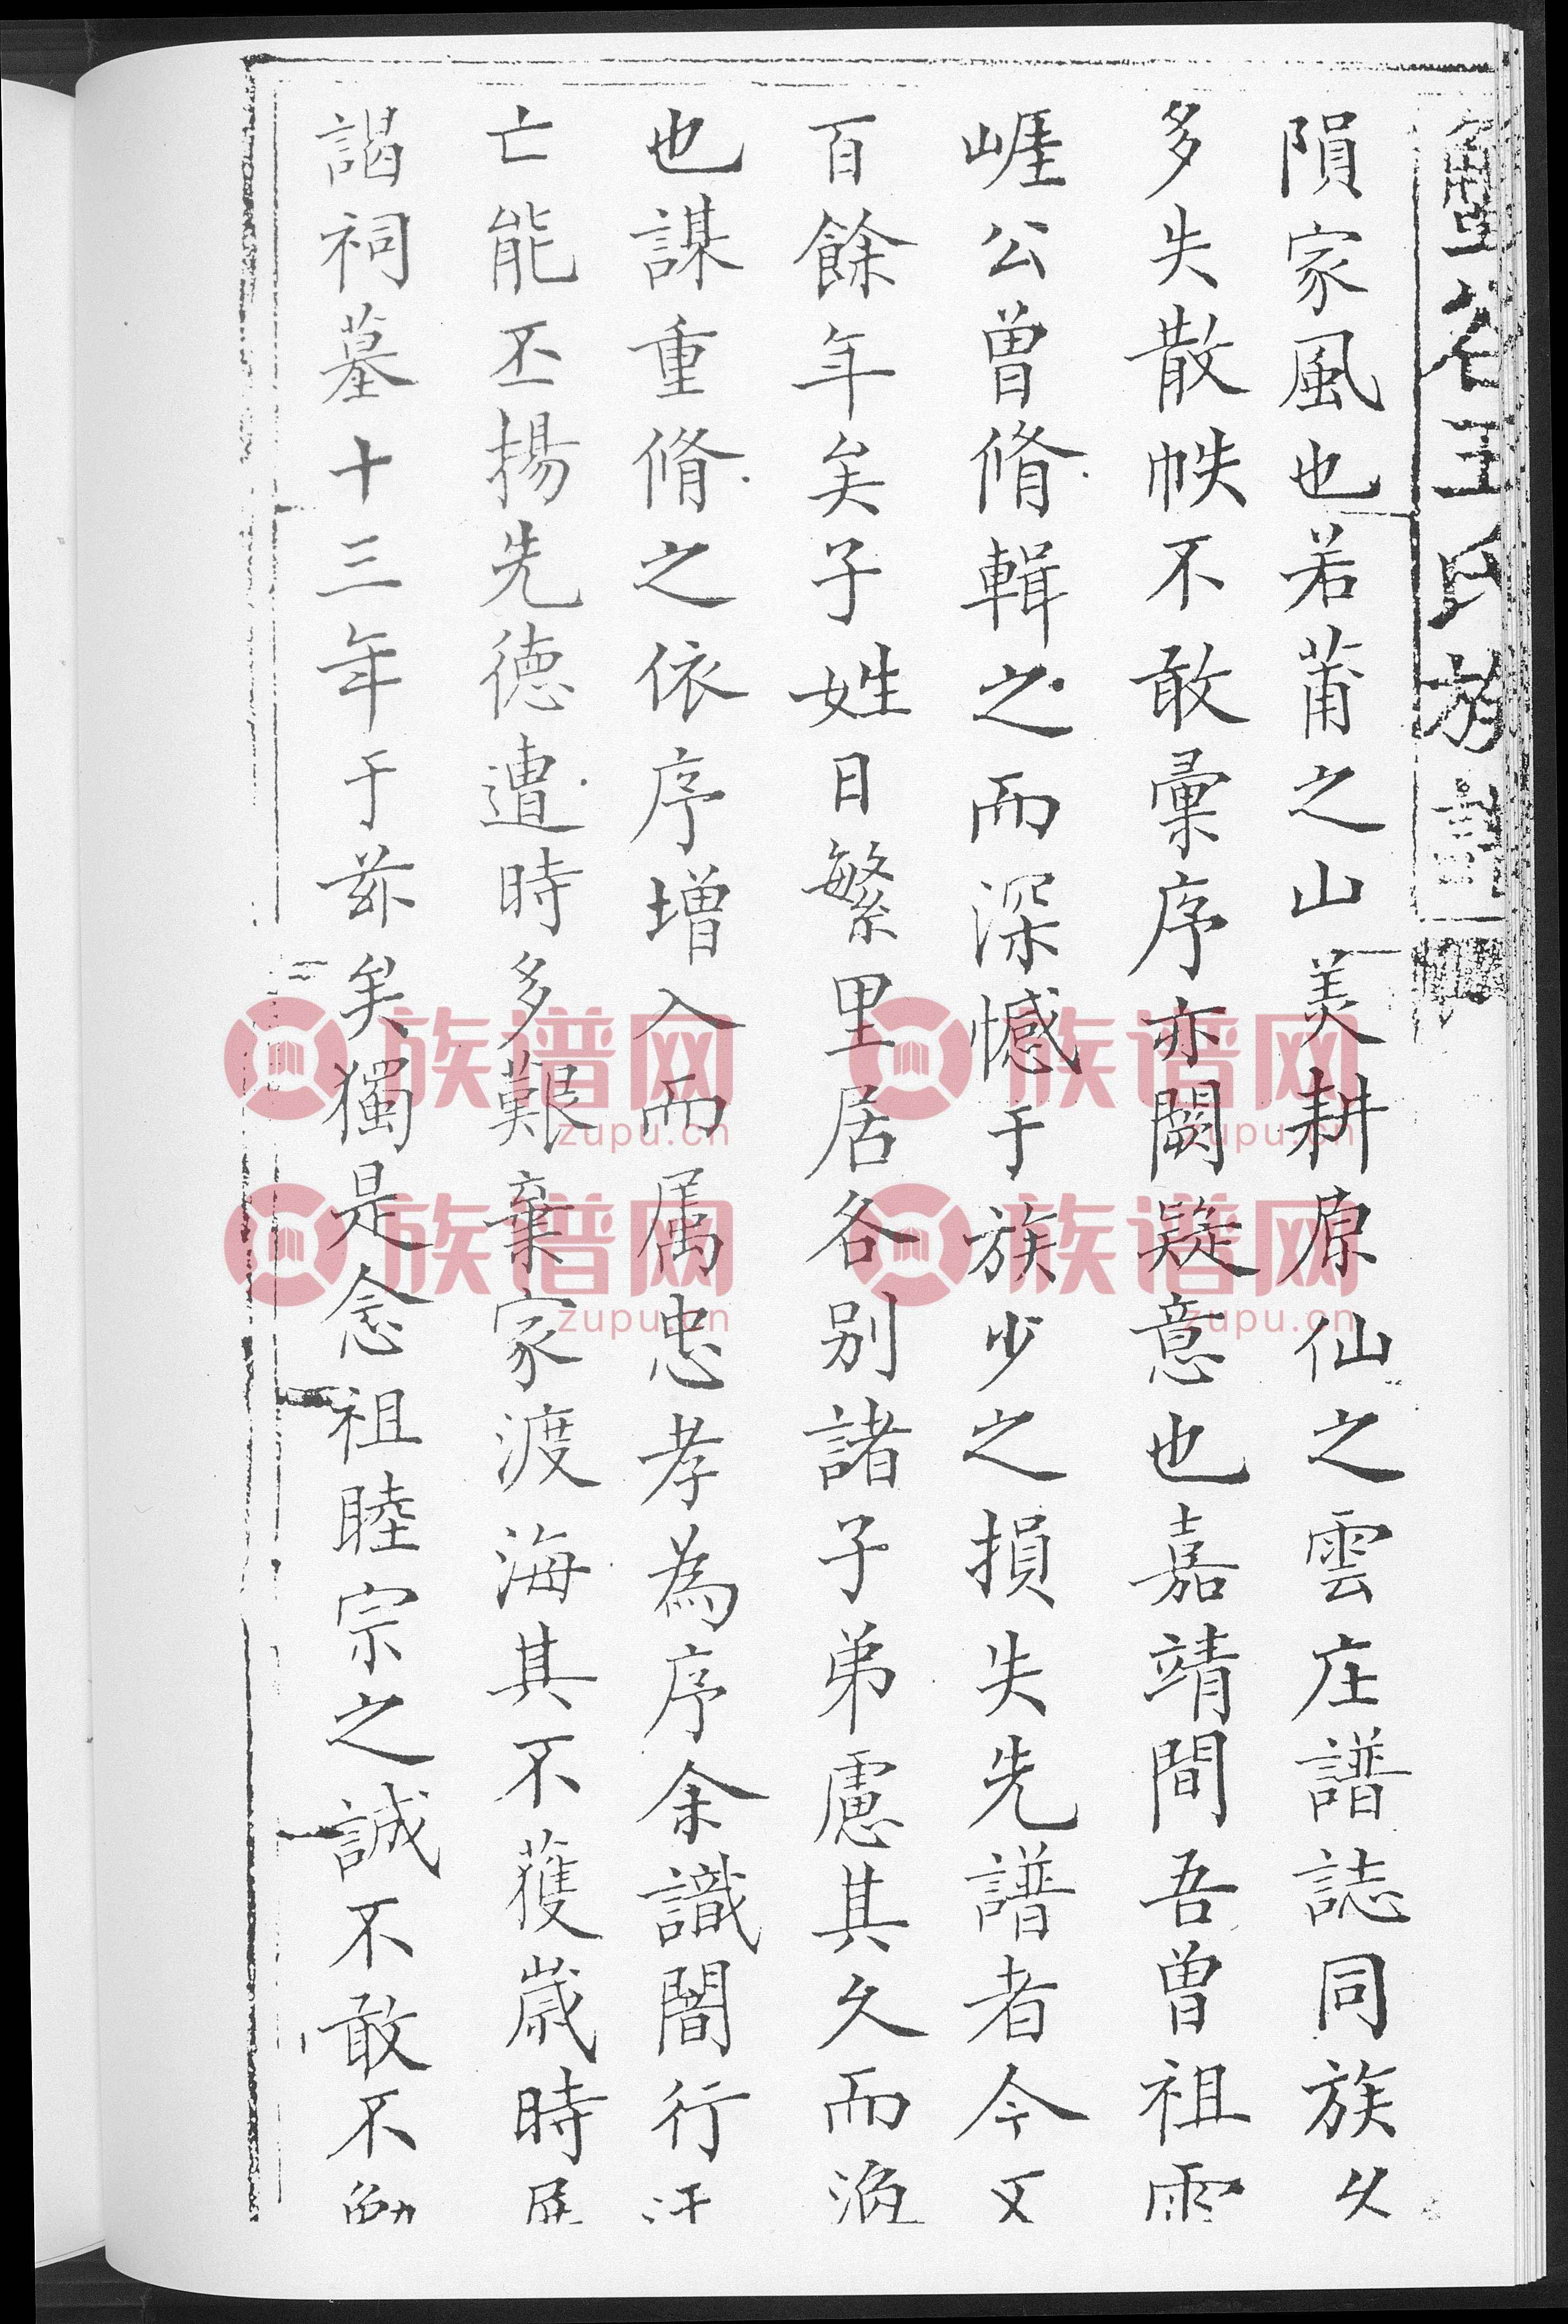 王氏族譜
隕家風也若莆之山美耕原仙之雲庄譜誌同族久
多失散帙不敢彙序亦闕疑意也嘉靖間吾曾祖雲
崕公曾脩輯之而深憾于族少之損失先譜者今又
百餘年矣子姓日繁里居各别諸子弟慮其久而
也謀重脩之依序增入而属忠孝為序余識闇行
亡能丕揚先德遭時多艱棄家渡海其不獲歳時展
謁祠墓十三年于茲矣獨是念祖睦宗之誠不敢不
族谱网
zupu.cn
族谱网
zupu.cn
族谱网
zupu.cn
族谱网
zupu.cn